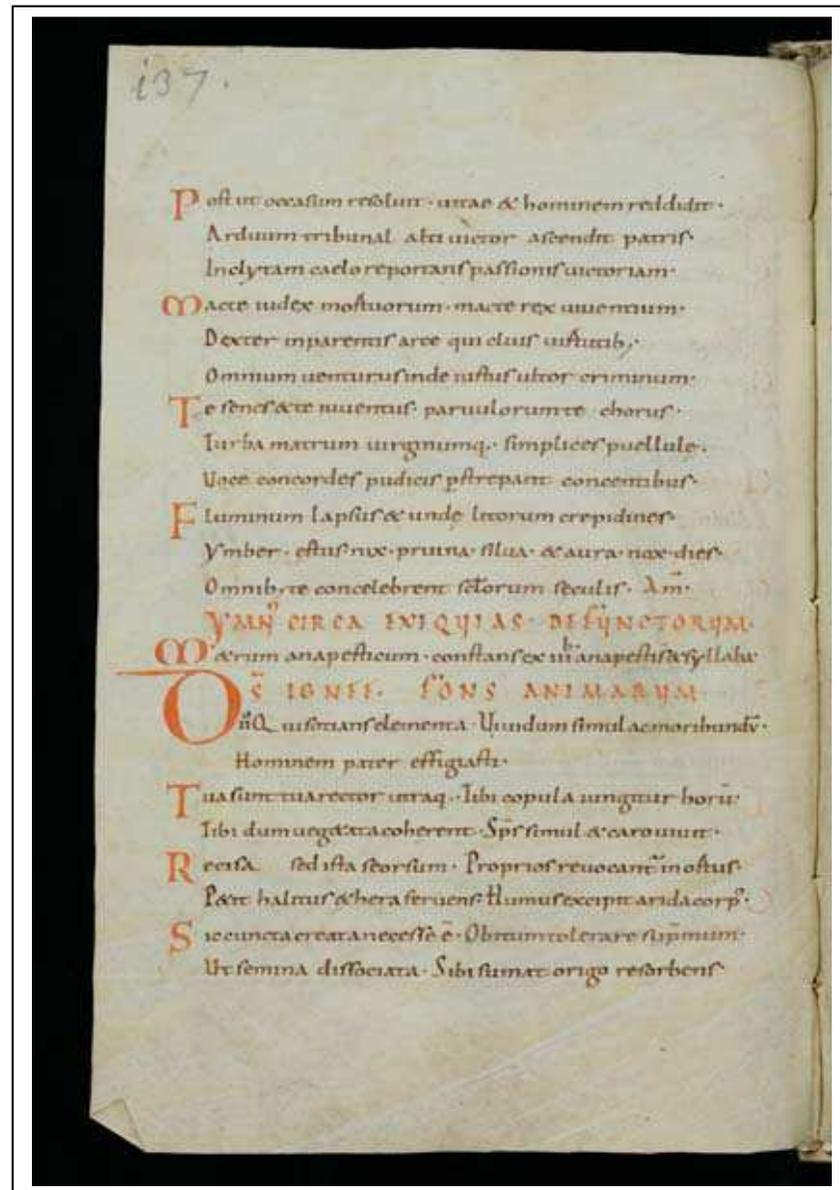 137.
Post ut occasum resoluit · uitae & hominem reddidit ·
Arduum tribunal alti uictor ascendit patris ·
Inclytam caelo reportans passionis uictoriam ·
Macte iudex mortuorum · macte rex uiuentium ·
Dexter in parentis arce qui cluis uirtutib; ·
Omnium uenturus inde iustus ultor criminum ·
Te senes & te iuuentus · paruulorum te chorus ·
Turba matrum uirginumq. · simplices puellule .
Uoce concordes pudicis pstrepant concentibus ·
Fluminum lapsus & unde litorum crepidines ·
Ymber · estus nix · pruina · silua · & aura · nox · dies ·
Omnib; te concelebrent sclorum seculis · Am̅
YMN̅ CIRCA EXEQUIAS · DEFUNCTORUM ·
M&rum anapesticum · constans ex iii anapestis & syllaba
DS̅ IGNEE · FONS ANIMARUM
Qui sotians elementa · Uiuidum simul ac moribundū ·
Hominem pater effigiasti ·
Tua sunt tua rector utraq. · Tibi copula iungitur horū ·
Tibi dum ueg&ata coherent · Sps̅ simul & caro uiuit ·
Recisa sed ista seorsum · Proprios reuocant in ortus ·
P&it halitus & hera feruens · Humus excipit arida corp' ·
Sic cuncta creata necesse ē · Obitum tolerare supmum ·
Ut semina dissociata · Sibi sumat origo resorbens ·